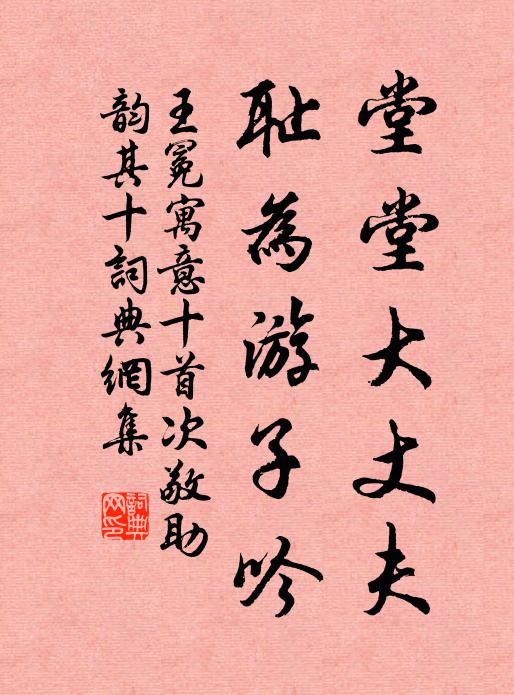 堂堂大丈夫
耻為游子吟
王冕寓意十首次敬助
韵其十詞典網集
詞典網印